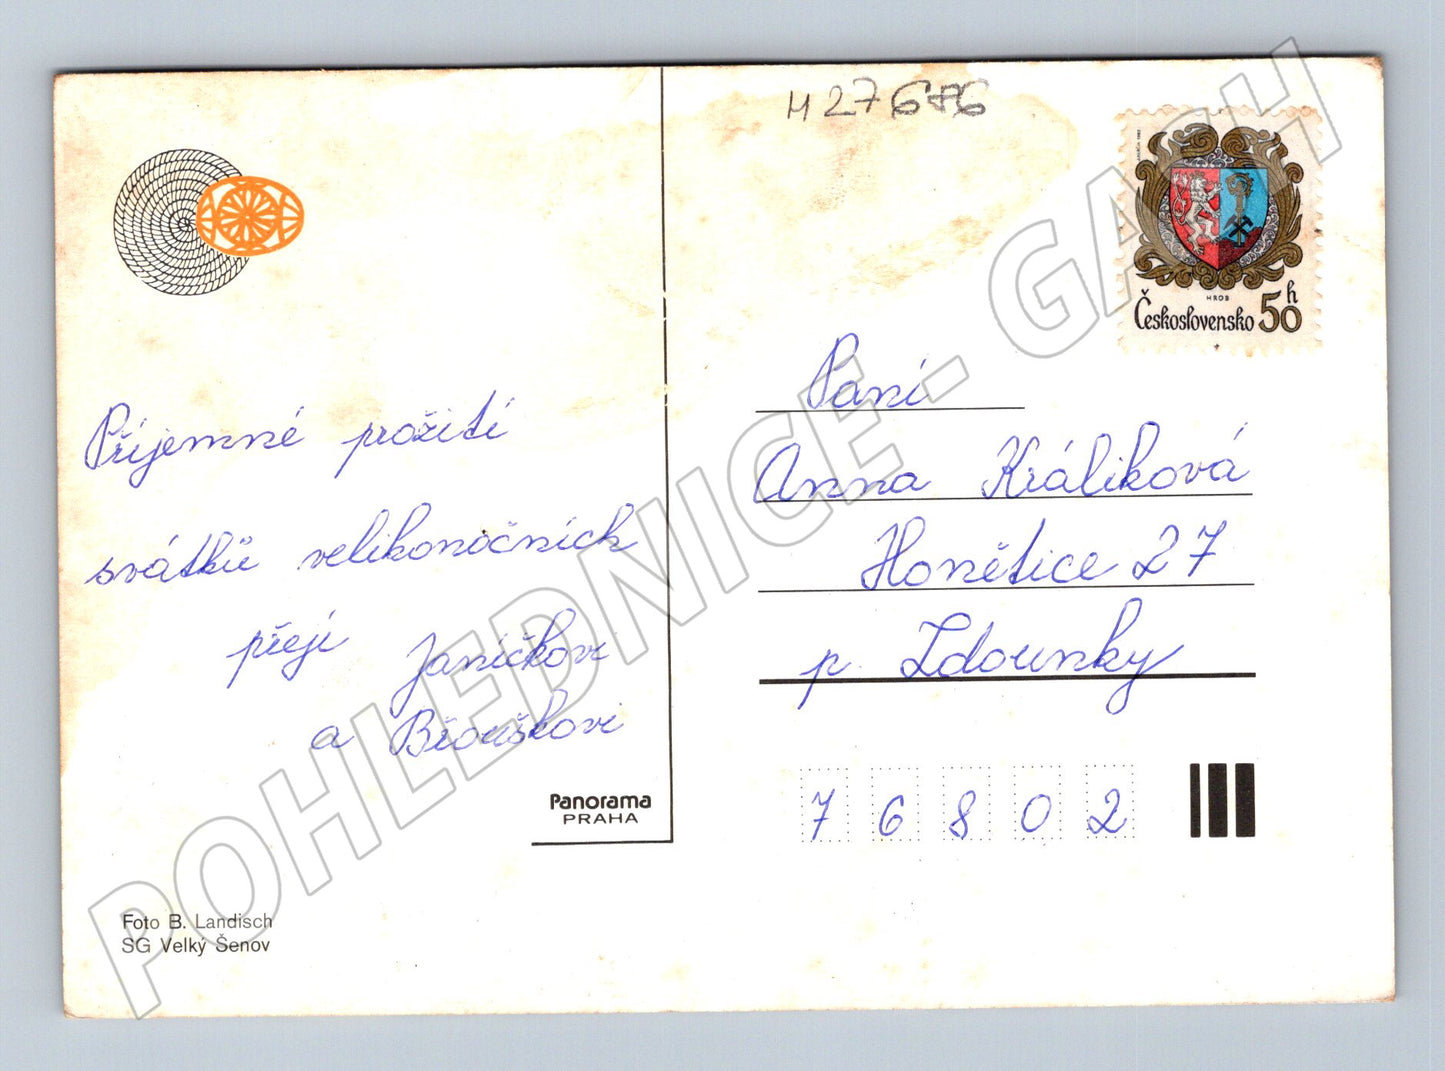 H 27676
HROB
Československo 50 h
Příjemné prožití
svátků velikonočních
přejí Janíčkovi
a Broučkovi
Paní
Anna Králiková
Honětice 27
p. Zdounky
76802
Panorama
PRAHA
Foto B. Landisch
SG Velký Šenov
POHLEDNICE - GASH